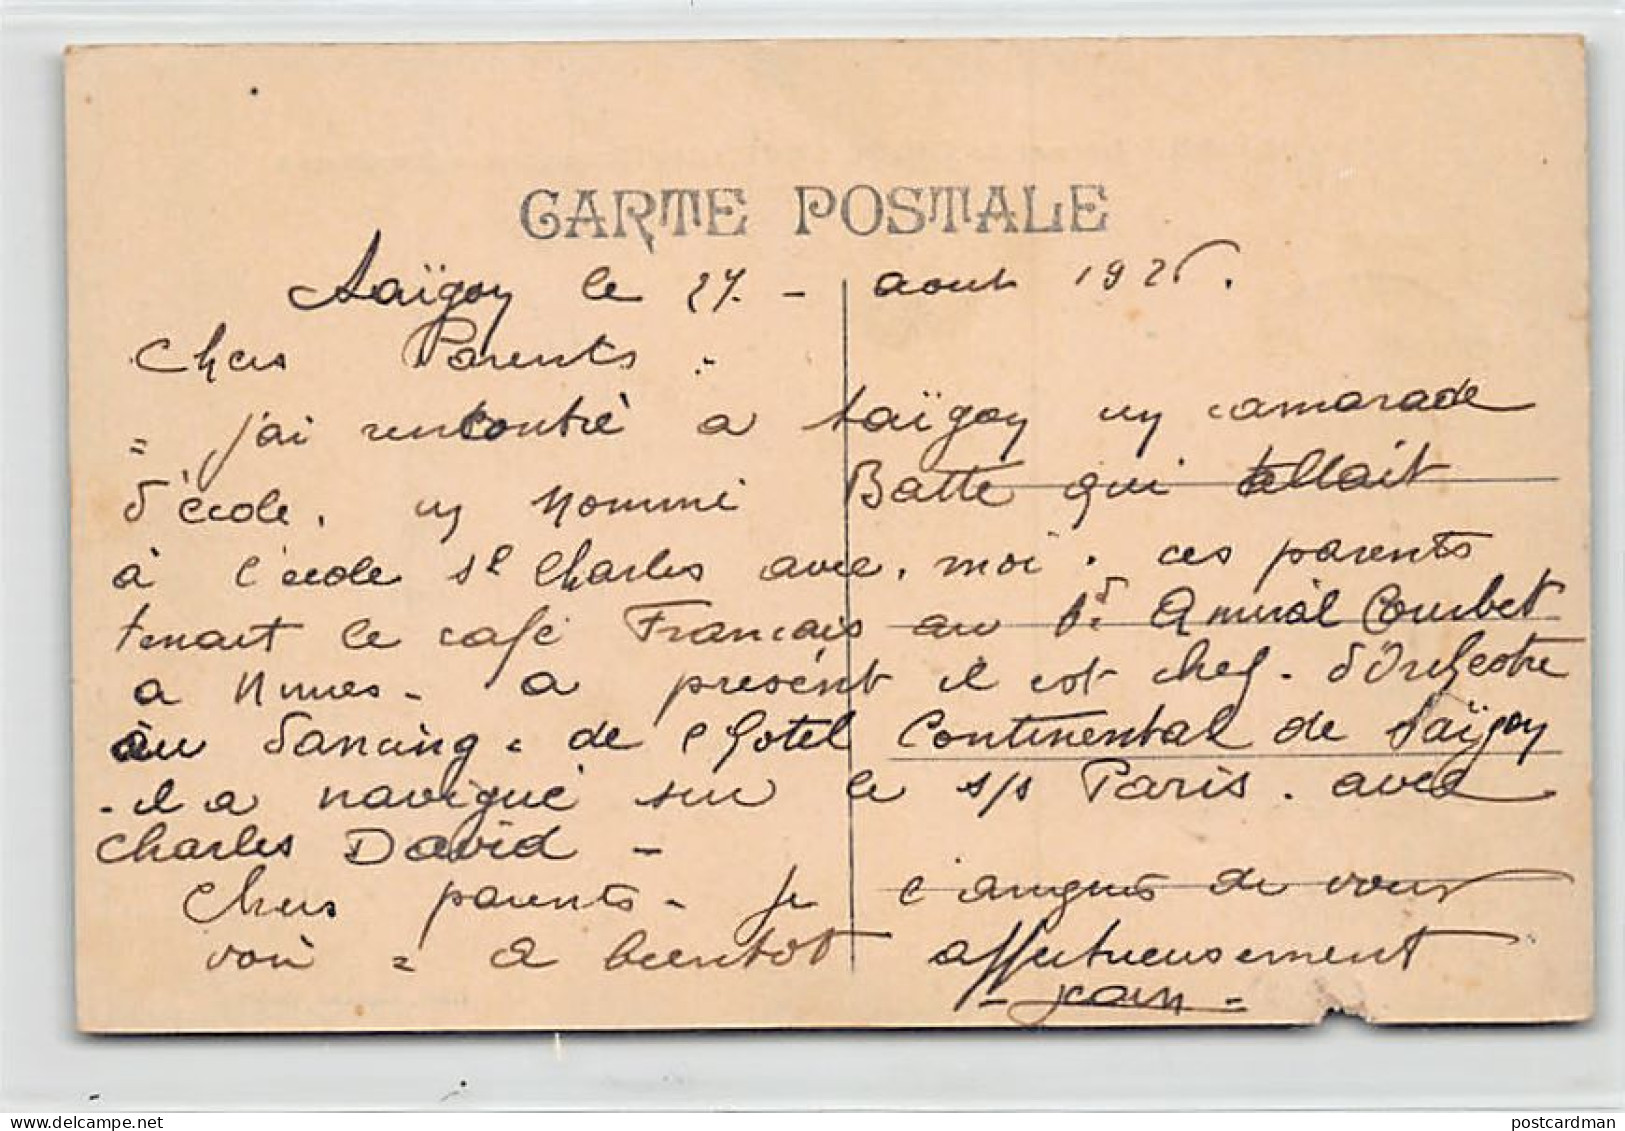 CARTE POSTALE
Saïgon le 27. - aout 1926.
Chers Parents.
= j'ai rencontré a Saïgon un camarade
d'école. un nommé Batte qui allait
à l'école St Charles avec. moi. ces parents
tenait le café Francais au Bd. Amiral Courbet
a Nimes - a présent il est chef. d'Orchestre
au dancing. de l'Hotel Continental de Saïgon
- il a navigué sur le s/s Paris. avec
Charles David -
Chers parents - je languis de vous
voir = a bientot affectueusement
- Jean -
postcardman